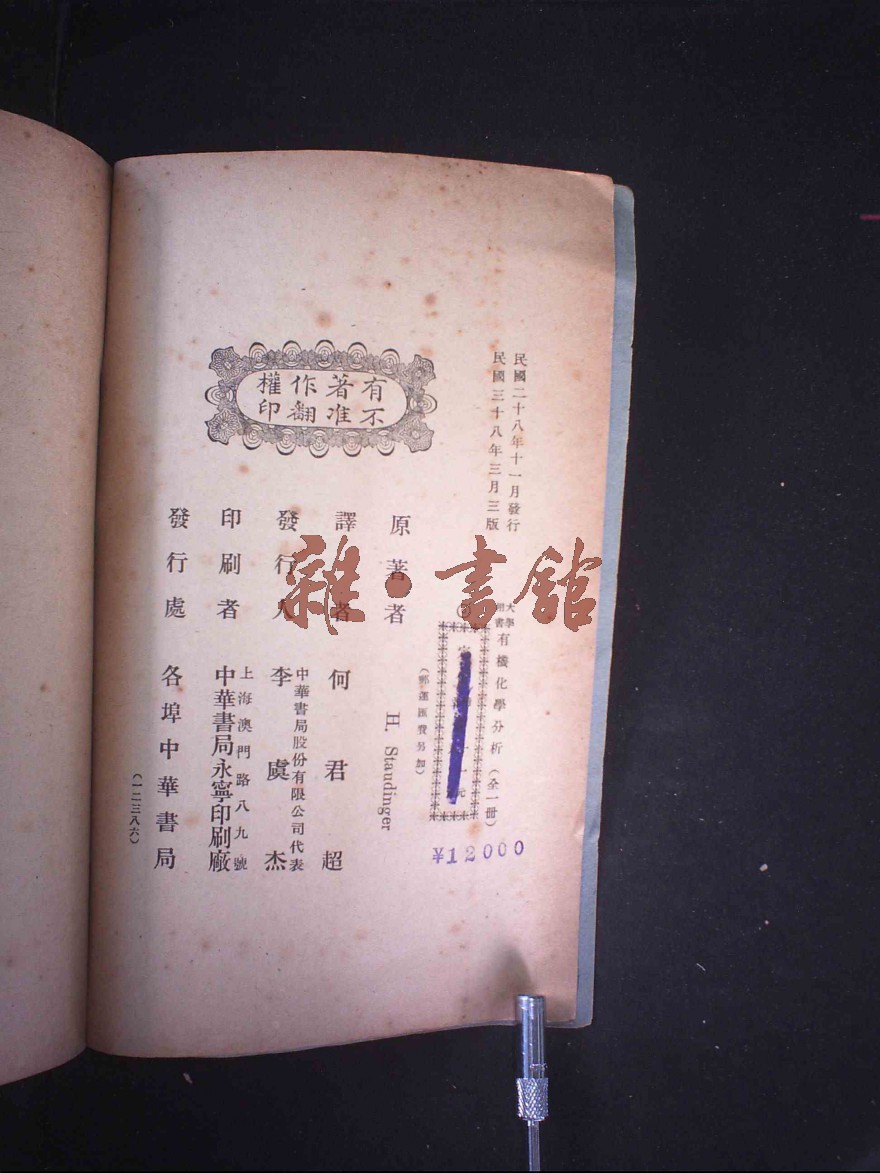 民國二十八年十一月發行
民國三十八年三月三版
大學用書 有機化學分析（全一册）
元
（郵運匯費另加）
¥12000
有著作權
不准翻印
原著者 H. Staudinger
譯者 何君超
發行人 中華書局股份有限公司代表
李虞杰
印刷者 上海澳門路八九號
中華書局永寧印刷廠
發行處 各埠中華書局
（一二三八六）
雜·書館